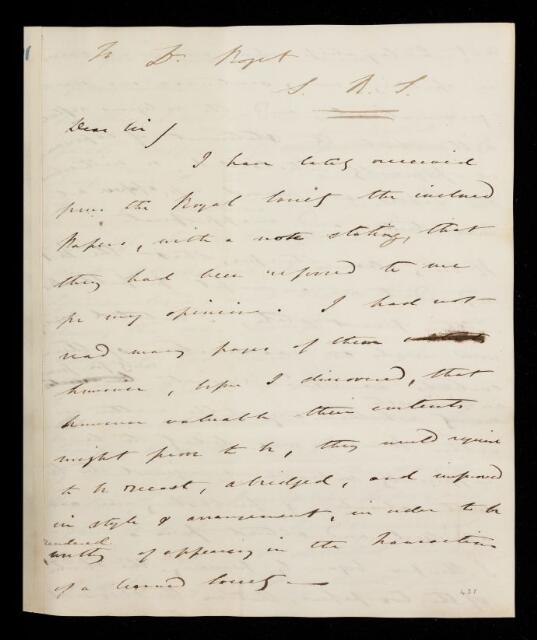 To Dr. Roget
S. R. S.
Dear Sir/
I have lately received
from the Royal Society the inclosed
Papers, with a note stating, that
they had been referred to me
for my opinion. I had not
read many pages of them
however, before I discovered, that
however valuable their contents
might prove to be, they would require
to be recast, abridged, and improved
in style & arrangement, in order to be
rendered
worthy of appearing in the Transactions
of a learned Society —
431